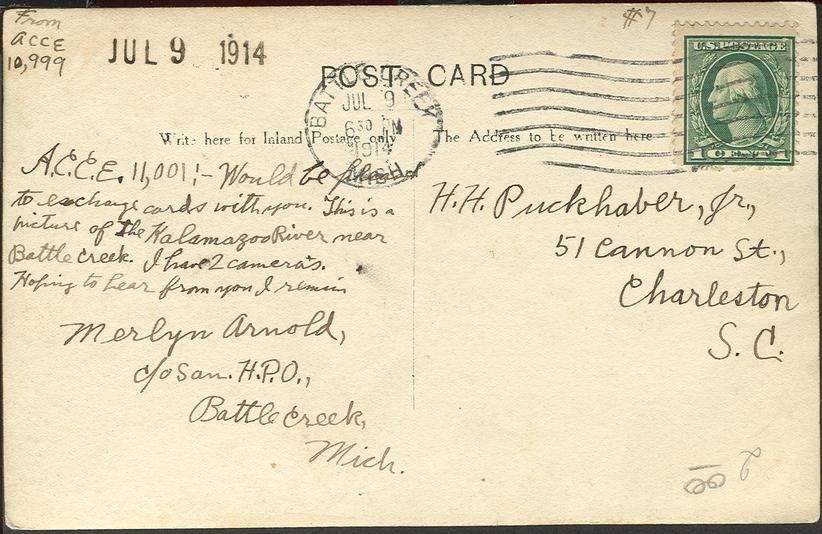 From
ACCE
10,999
JUL 9 1914
#7
POST CARD
BATTLE CREEK
JUL 9
6 30 PM
1914
MICH.
U.S. POSTAGE
1 CENT 1
Write here for Inland Postage only
The Address to be written here
A.C.C.E. 11,001;- Would be pleased
to exchange cards with you. This is a
picture of the Kalamazoo River near
Battle Creek. I have 2 cameras.
Hoping to hear from you I remain
Merlyn Arnold,
c/o San. H.P.O.,
Battle Creek,
Mich.
H.H. Puckhaber, Jr.,
51 Cannon St.,
Charleston
S. C.